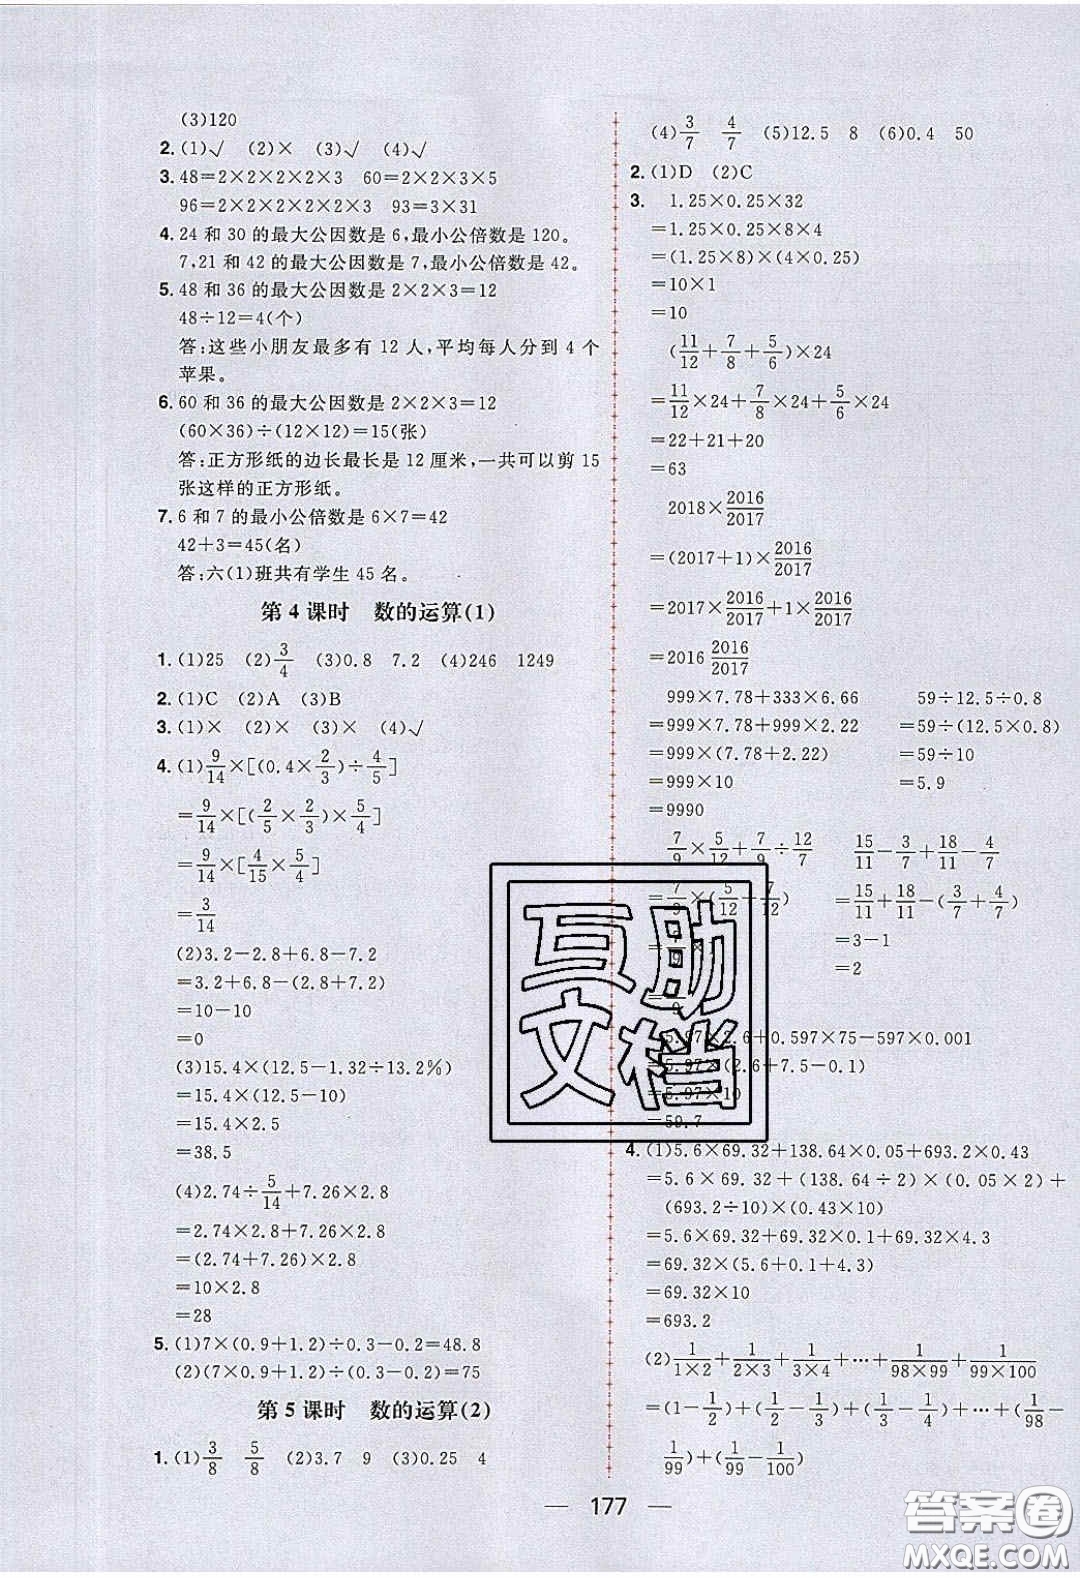 (3)120
2. (1)√ (2)× (3)√ (4)√
3. 48=2×2×2×2×3 60=2×2×3×5
96=2×2×2×2×2×3 93=3×31
4. 24 和 30 的最大公因数是 6,最小公倍数是 120。
7,21 和 42 的最大公因数是 7,最小公倍数是 42。
5. 48 和 36 的最大公因数是 2×2×3=12
48÷12=4(个)
答:这些小朋友最多有 12 人,平均每人分到 4 个
苹果。
6. 60 和 36 的最大公因数是 2×2×3=12
(60×36)÷(12×12)=15(张)
答:正方形纸的边长最长是 12 厘米,一共可以剪 15
张这样的正方形纸。
7. 6 和 7 的最小公倍数是 6×7=42
42+3=45(名)
答:六(1)班共有学生 45 名。
第 4 课时 数的运算(1)
1. (1)25 (2)3/4 (3)0.8 7.2 (4)246 1249
2. (1)C (2)A (3)B
3. (1)× (2)× (3)× (4)√
4. (1)9/14×[(0.4×2/3)÷4/5]
=9/14×[(2/5×2/3)×5/4]
=9/14×[4/15×5/4]
=3/14
(2)3.2-2.8+6.8-7.2
=3.2+6.8-(2.8+7.2)
=10-10
=0
(3)15.4×(12.5-1.32÷13.2%)
=15.4×(12.5-10)
=15.4×2.5
=38.5
(4)2.74÷5/14+7.26×2.8
=2.74×2.8+7.26×2.8
=(2.74+7.26)×2.8
=10×2.8
=28
5. (1)7×(0.9+1.2)÷0.3-0.2=48.8
(2)(7×0.9+1.2)÷(0.3-0.2)=75
第 5 课时 数的运算(2)
1. (1)3/8 5/8 (2)3.7 9 (3)0.25 4
(4)3/7 4/7 (5)12.5 8 (6)0.4 50
2. (1)D (2)C
3. 1.25×0.25×32
=1.25×0.25×8×4
=(1.25×8)×(4×0.25)
=10×1
=10
(11/12+7/8+5/6)×24
=11/12×24+7/8×24+5/6×24
=22+21+20
=63
2018×2016/2017
=(2017+1)×2016/2017
=2017×2016/2017+1×2016/2017
=2016 2016/2017
999×7.78+333×6.66 59÷12.5÷0.8
=999×7.78+999×2.22 =59÷(12.5×0.8)
=999×(7.78+2.22) =59÷10
=999×10 =5.9
=9990
7/9×5/12+7/9÷12/7 15/11-3/7+18/11-4/7
=7/9×(5/12+7/12) =15/11+18/11-(3/7+4/7)
=7/9×1 =3-1
=7/9 =2
5.97×2.6+0.597×75-597×0.001
=5.97×(2.6+7.5-0.1)
=5.97×10
=59.7
4. (1)5.6×69.32+138.64×0.05+693.2×0.43
=5.6×69.32+(138.64÷2)×(0.05×2)+
(693.2÷10)×(0.43×10)
=5.6×69.32+0.1×69.32+69.32×4.3
=69.32×(5.6+0.1+4.3)
=69.32×10
=693.2
(2)1/1×2+1/2×3+1/3×4+…+1/98×99+1/99×100
=(1-1/2)+(1/2-1/3)+(1/3-1/4)+…+(1/98-
1/99)+(1/99-1/100)
互助
文档
— 177 —
答案圈
MXQE.COM